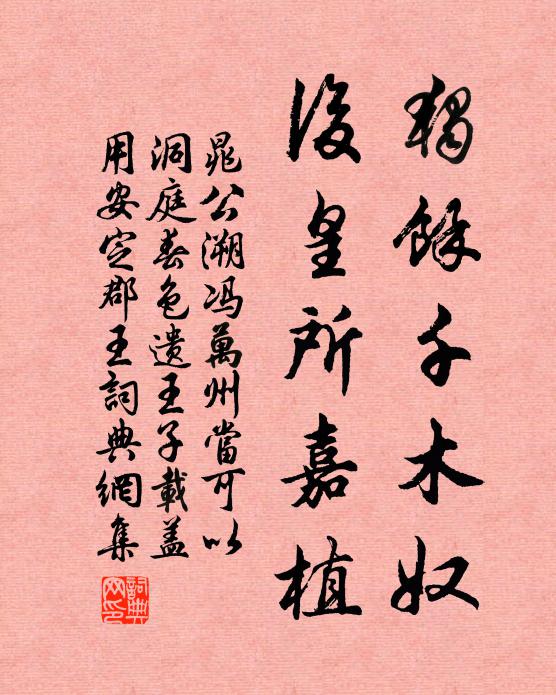 獨餘千木奴
後皇所嘉植
晁公溯馮萬州當可以
洞庭春色遺王子載蓋
用安定郡王詞典網集
詞典網印